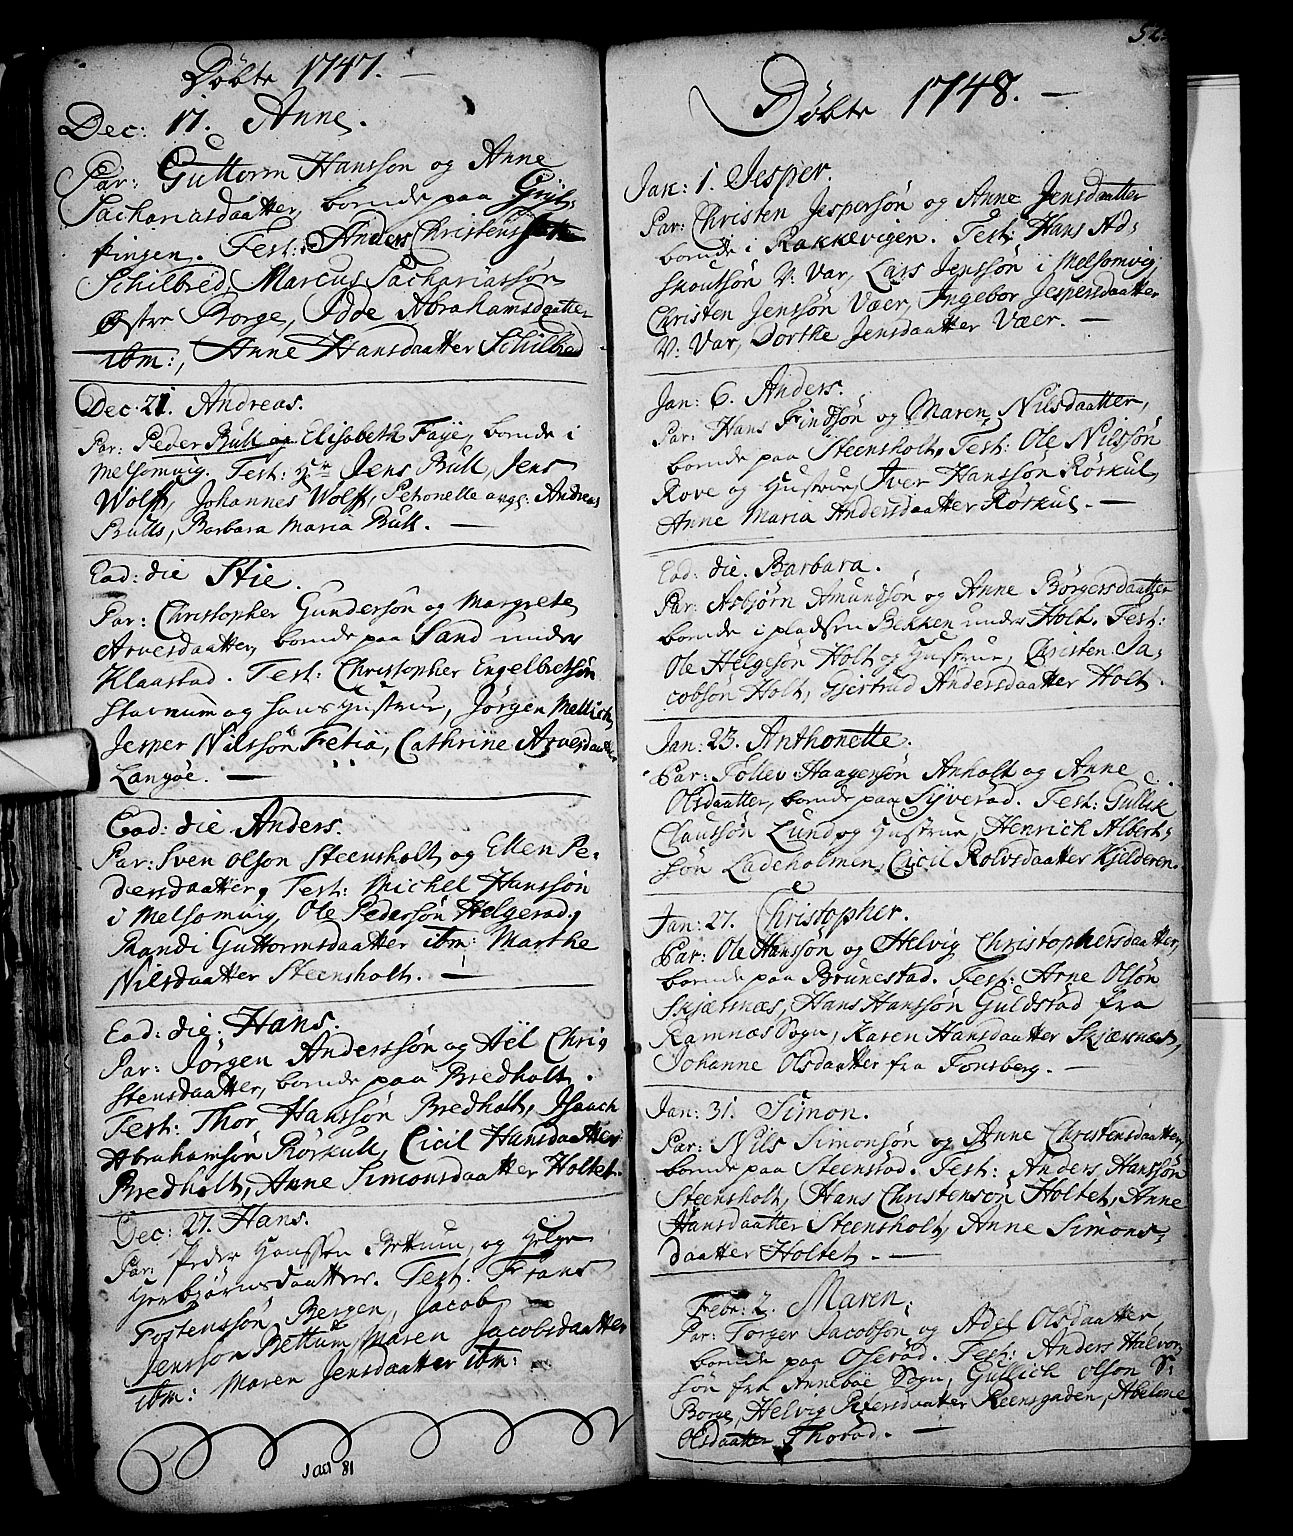 Döbte 1747. —
Dec: 17. Anne.
Par: Guttorm Hanssön og Anne
Sachariasdaatter, boende paa
tingen. Test: Anders Christens
Schilbred, Marcus Sachariassön
Øster Borge, Idde Abrahamsdaatter
ibm:, Anne Hansdaatter Schilbred
Dec: 21. Andreas.
Par: Peder Bull og Elisabeth Faye, boende i
Melsomvig. Test: Hr Jens Bull, Jens
Wolff, Johannes Wolff, Petronelle Andreas
Bulls, Barbara Maria Bull. —
Ead: die Stie.
Par: Christopher Gundersön og Margrete
Arvesdaatter, boende paa Sand under
Klaastad. Test: Christopher Engelbretsön
Stavnum og hans Hustrue, Jörgen Mellich,
Jesper Nilssön Fetia, Cathrine Arvesdaatter
Langöe. —
Ead: die Anders.
Par: Sven Olson Steensholt og Ellen Pe-
dersdaatter, Test: Michel Hanssön
i Melsomvig, Ole Pedersön Helgerød,
Randi Guttormsdaatter ibm: Marthe
Nilsdaatter Steensholt. —
Ead: die: Hans.
Par: Jörgen Anderssön og Äil Chri-
stensdaatter, boende paa Bredholt.
Test: Thor Hanssön Bredholt, Isaach
Abrahamsön Rörkull, Cicil Hansdaatter
Bredholt, Anne Simonsdaatter Holtet.
Dec: 27. Hans.
Par: Peder Hanssen Bettum, og Helge
Herbjörnsdaatter. Test: Frans
Tostenssön Bergen, Jacob
Jenssön Bettum, Maren Jacobsdaatter
ibm: Maren Jensdaatter ibm:
52.
Döbte 1748. —
Jan: 1. Jesper.
Par: Christen Jespersön og Anne Jensdaatter
boende i Rakkevigen. Test: Hans Ad-
skoutsön V: Vær, Lars Jenssön i Melsomvig
Christen Jenssön Væer, Ingebor Jespersdaatter
V: Vær, Dorthe Jensdaatter Væer. —
Jan: 6. Anders.
Par: Hans Findsön og Maren Nilsdaatter,
boende paa Steensholt, Test: Ole Nilssön
Rove og Hustrue, Iver Hanssön Rörkul,
Anne Maria Andersdaatter Rörkul. —
Ead: die. Barbara.
Par: Asbjörn Amundsön og Anne Börgersdaatter
boende i pladsen Bekken under Holt. Test:
Ole Helgesön Holt og Hustrue, Christen Ja-
cobsön Holt, Giertrud Andersdaatter Holt.
Jan: 23. Anthonette.
Par: Tollev Haagensön Anholt og Anne
Olsdaatter, boende paa Syverød. Test: Gullik
Claussön Lund og Hustrue, Henrich Albert-
sön Ladeholmen, Cicil Rolvsdaatter Kjelderen.
Jan: 27. Christopher.
Par: Ole Hanssön og Helvig Christophersdaatter,
boende paa Brunestad. Test: Arne Olsön
Skjærsnæs, Hans Hanssön Guldstad fra
Ramnæs Sogn, Karen Hansdaatter Skjærsnæs,
Johanne Olsdaatter fra Tonsberg. —
Jan: 31. Simon.
Par: Nils Simonsön og Anne Christensdaatter,
boende paa Steensød. Test: Anders Hanssön
Steensholt, Hans Christensön Holtet, Anne
Hansdaatter Steensholt, Anne Simons-
daatter Holtet. —
Febr: 2. Maren.
Par: Torger Jacobsön og Adel Olsdaatter
boende paa Oserød. Test: Anders Halvor-
sön fra Anneboe Sogn, Gullich Olson V:
Borge, Helvig Pedersdaatter Reensgaden, Abelone
Olsdaatter Thorød. —